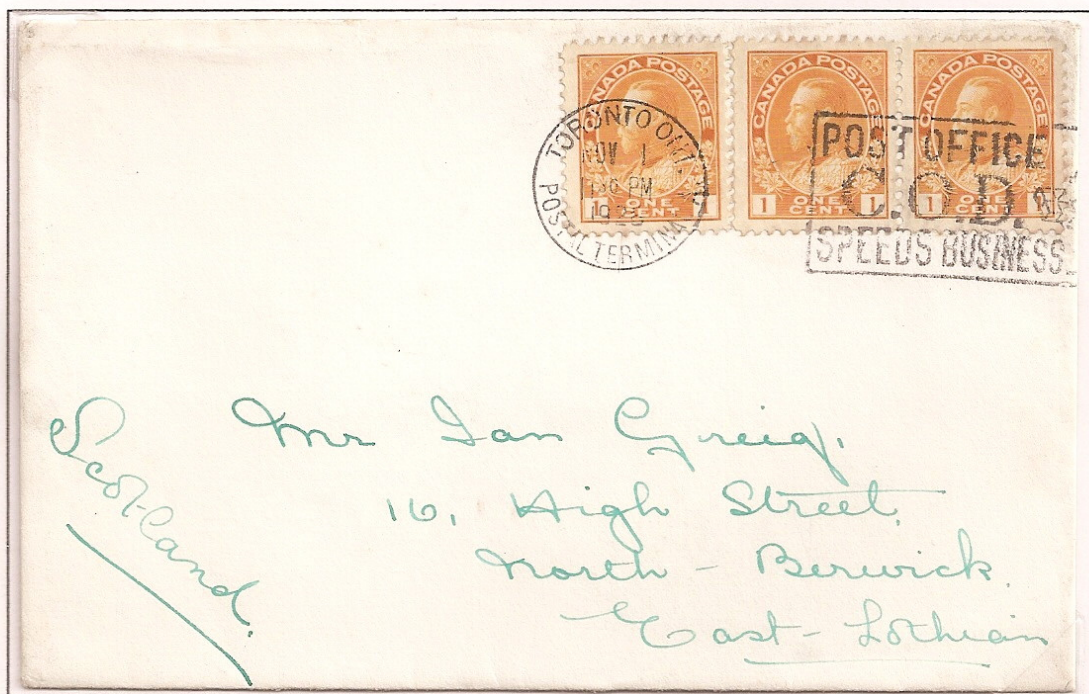 CANADA POSTAGE
1 ONE CENT 1
CANADA POSTAGE
1 ONE CENT 1
CANADA POSTAGE
1 ONE CENT 1
TORONTO ONT.
NOV 1
PM
POSTAL TERMINAL
POST OFFICE
C.O.D.
SPEEDS BUSINESS
Mr Ian Greig.
16, High Street,
North - Berwick.
East - Lothian
Scotland.